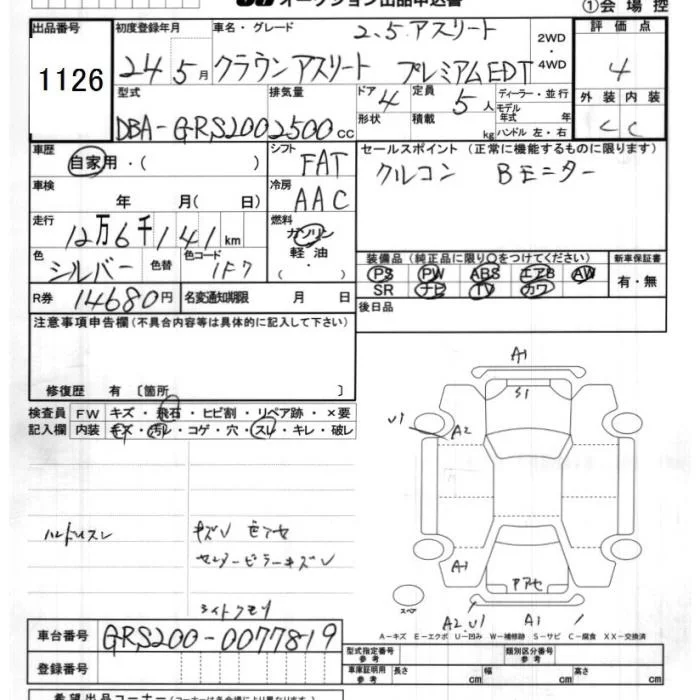 オークション出品申込書 ①会場控
出品番号 初度登録年月 車名・グレード 2.5 アスリート 2WD・4WD 評価点
1126 24 5月 クラウンアスリート プレミアムEDT 4
型式 排気量 ドア 4 定員 5人 ディーラー・並行 外装 内装
DBA-GRS200 2500cc 形状 積載 kg モデル年式 年 ハンドル 左・右 C C
車歴 自家用・( ) シフト FAT セールスポイント (正常に機能するものに限ります)
車検 年 月( 日) 冷房 AAC クルコン Bモニター
走行 12万6千141km 燃料 ガソリン・軽油・( )
色 シルバー 色替 色コード 1F7
装備品 (純正品に限り○をつけてください) 新車保証書
PS PW ABS エアB AW 有・無
SR ナビ TV カワ
R券 14680円 名変通知期限 月 日 後日品
注意事項申告欄(不具合内容等は具体的に記入して下さい)
修復歴 有 〔箇所 〕
検査員 FW キズ・飛石・ヒビ割・リペア跡・×要
記入欄 内装 キズ・汚レ・コゲ・穴・スレ・キレ・破レ
A1
S1
U1
A2
ハンドルスレ キズU
センターピラーキズU
A1
アアセ
スペア
ライトクモリ
A2 U1 A1
A-キズ E-エクボ U-凹み W-補修跡 S-サビ C-腐食 XX-交換済
車台番号 GRS200-0077819
登録番号
型式指定番号 参考 類別区分番号 参考
車庫証明用 参考 長さ cm 幅 cm 高さ cm
希望出品コーナー(コーナーは各会場により異なります)